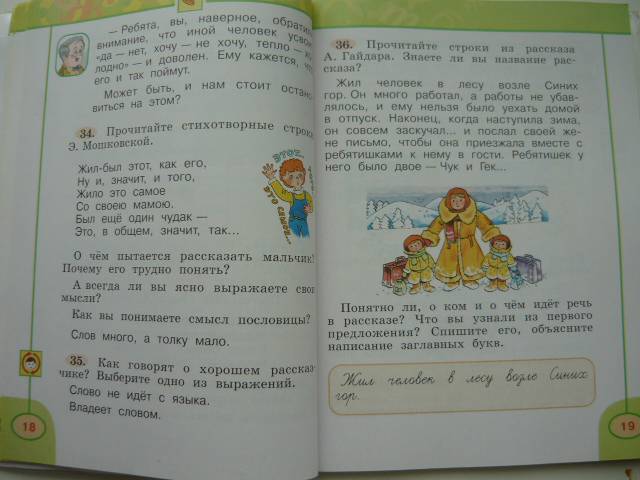 — Ребята, вы, наверное, обратили
внимание, что иной человек усвоил
«да — нет, хочу — не хочу, тепло —
лодно» — и доволен. Ему кажется, что
его и так поймут.
Может быть, и нам стоит остано-
виться на этом?
34. Прочитайте стихотворные строки
Э. Мошковской.
Жил-был этот, как его,
Ну и, значит, и того,
Жило это самое
Со своею мамою.
Был ещё один чудак —
Это, в общем, значит, так...
ЭТОЕ...
ЭТО САМОЕ...
О чём пытается рассказать мальчик?
Почему его трудно понять?
А всегда ли вы ясно выражаете свои
мысли?
Как вы понимаете смысл пословицы?
Слов много, а толку мало.
35. Как говорят о хорошем рассказ-
чике? Выберите одно из выражений.
Слово не идёт с языка.
Владеет словом.
18
36. Прочитайте строки из рассказа
А. Гайдара. Знаете ли вы название рас-
сказа?
Жил человек в лесу возле Синих
гор. Он много работал, а работы не убав-
лялось, и ему нельзя было уехать домой
в отпуск. Наконец, когда наступила зима,
он совсем заскучал... и послал своей же-
не письмо, чтобы она приезжала вместе с
ребятишками к нему в гости. Ребятишек у
него было двое — Чук и Гек...
Понятно ли, о ком и о чём идёт речь
в рассказе? Что вы узнали из первого
предложения? Спишите его, объясните
написание заглавных букв.
Жил человек в лесу возле Синих
гор.
19